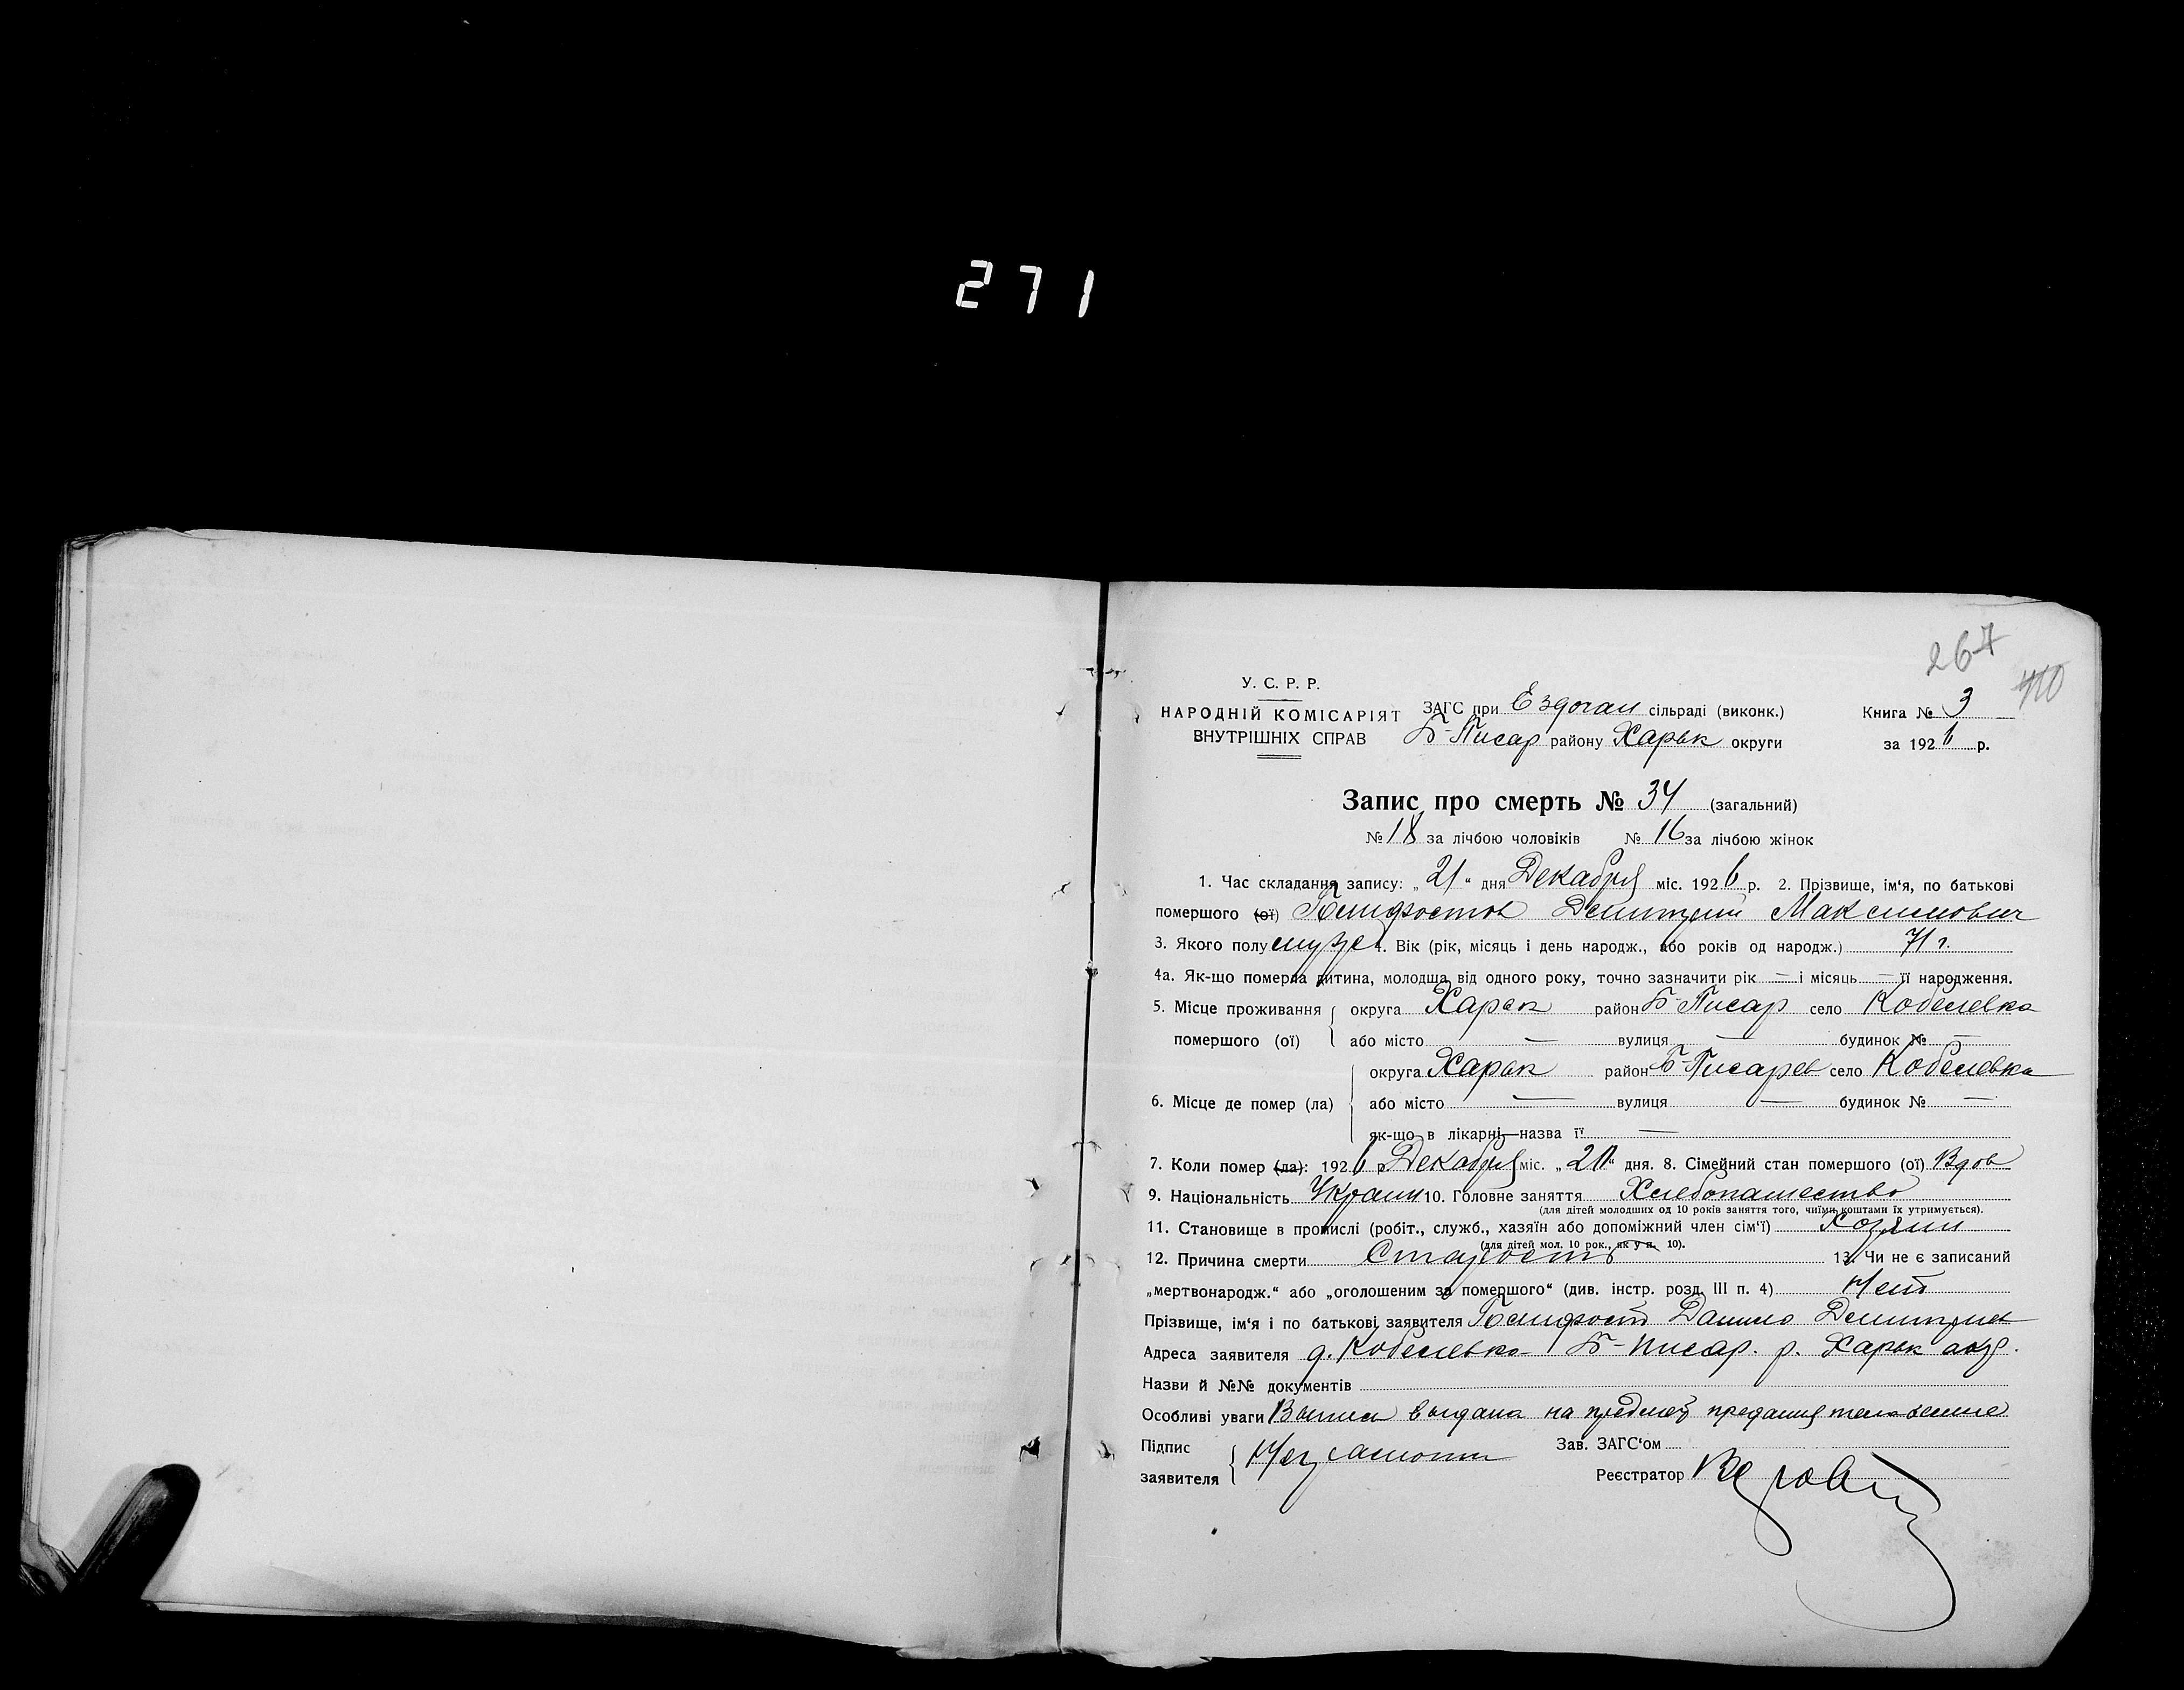 271
267
410
У. С. Р. Р.
НАРОДНІЙ КОМІСАРІЯТ
ВНУТРІШНІХ СПРАВ
ЗАГС при Ездоган сільраді (виконк.)
Б-Писар району Харьк округи
Книга № 3
за 1926 р.
Запис про смерть № 34 (загальний)
№ 18 за лічбою чоловіків № 16 за лічбою жінок
1. Час складання запису: „ 21 “ дня Декабря міс. 1926 р. 2. Прізвище, ім‘я, по батькові
помершого (ої) Дмитрий Максимович
3. Якого полу муж 4. Вік (рік, місяць і день народж., або років од народж.) 71 г.
4а. Як-що померла дитина, молодща від одного року, точно зазначити рік — і місяць — її народження.
5. Місце проживання помершого (ої) округа Харьк район Б-Писар село Кобелевка
або місто — вулиця — будинок № —
6. Місце де помер (ла) округа Харьк район Б-Писарев село Кобелевка
або місто — вулиця — будинок № —
як-що в лікарні—назва її —
7. Коли помер (ла): 1926 р Декабря міс. „ 20 “ дня. 8. Сімейний стан помершого (ої) Вдов
9. Національність Украин 10. Головне заняття Хлебопашество
(для дітей молодших од 10 років заняття того, чиїми коштами їх утримується).
11. Становище в промислі (робіт., служб., хазяїн або допоміжний член сім‘ї) Хозяин
(для дітей мол. 10 рок., як у п. 10).
12. Причина смерти Старость 13. Чи не є записаний
„мертвонародж.“ або „оголошеним за помершого“ (див. інстр. розд. III п. 4) Нет
Прізвище, ім‘я і по батькові заявителя Данило Дмитриев
Адреса заявителя д. Кобелевка Б-Писар. р. Харьк окр.
Назви й №№ документів
Особливі уваги Выпись выдана на предмет предания тела земле
Підпис заявителя Неграмотн
Зав. ЗАГС‘ом
Реєстратор